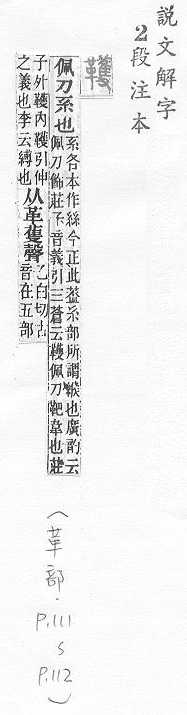 說文解字
2段注本
韄
佩刀系也
系各本作絲今正此葢糸部所謂緱也廣韵云
佩刀飾莊子音義引三蒼云韄佩刀靶韋也莊
子外韄內韄引伸
之義也李云縛也
从革蒦聲
乙白切古
音在五部
（革部．P.111
S
P.112）